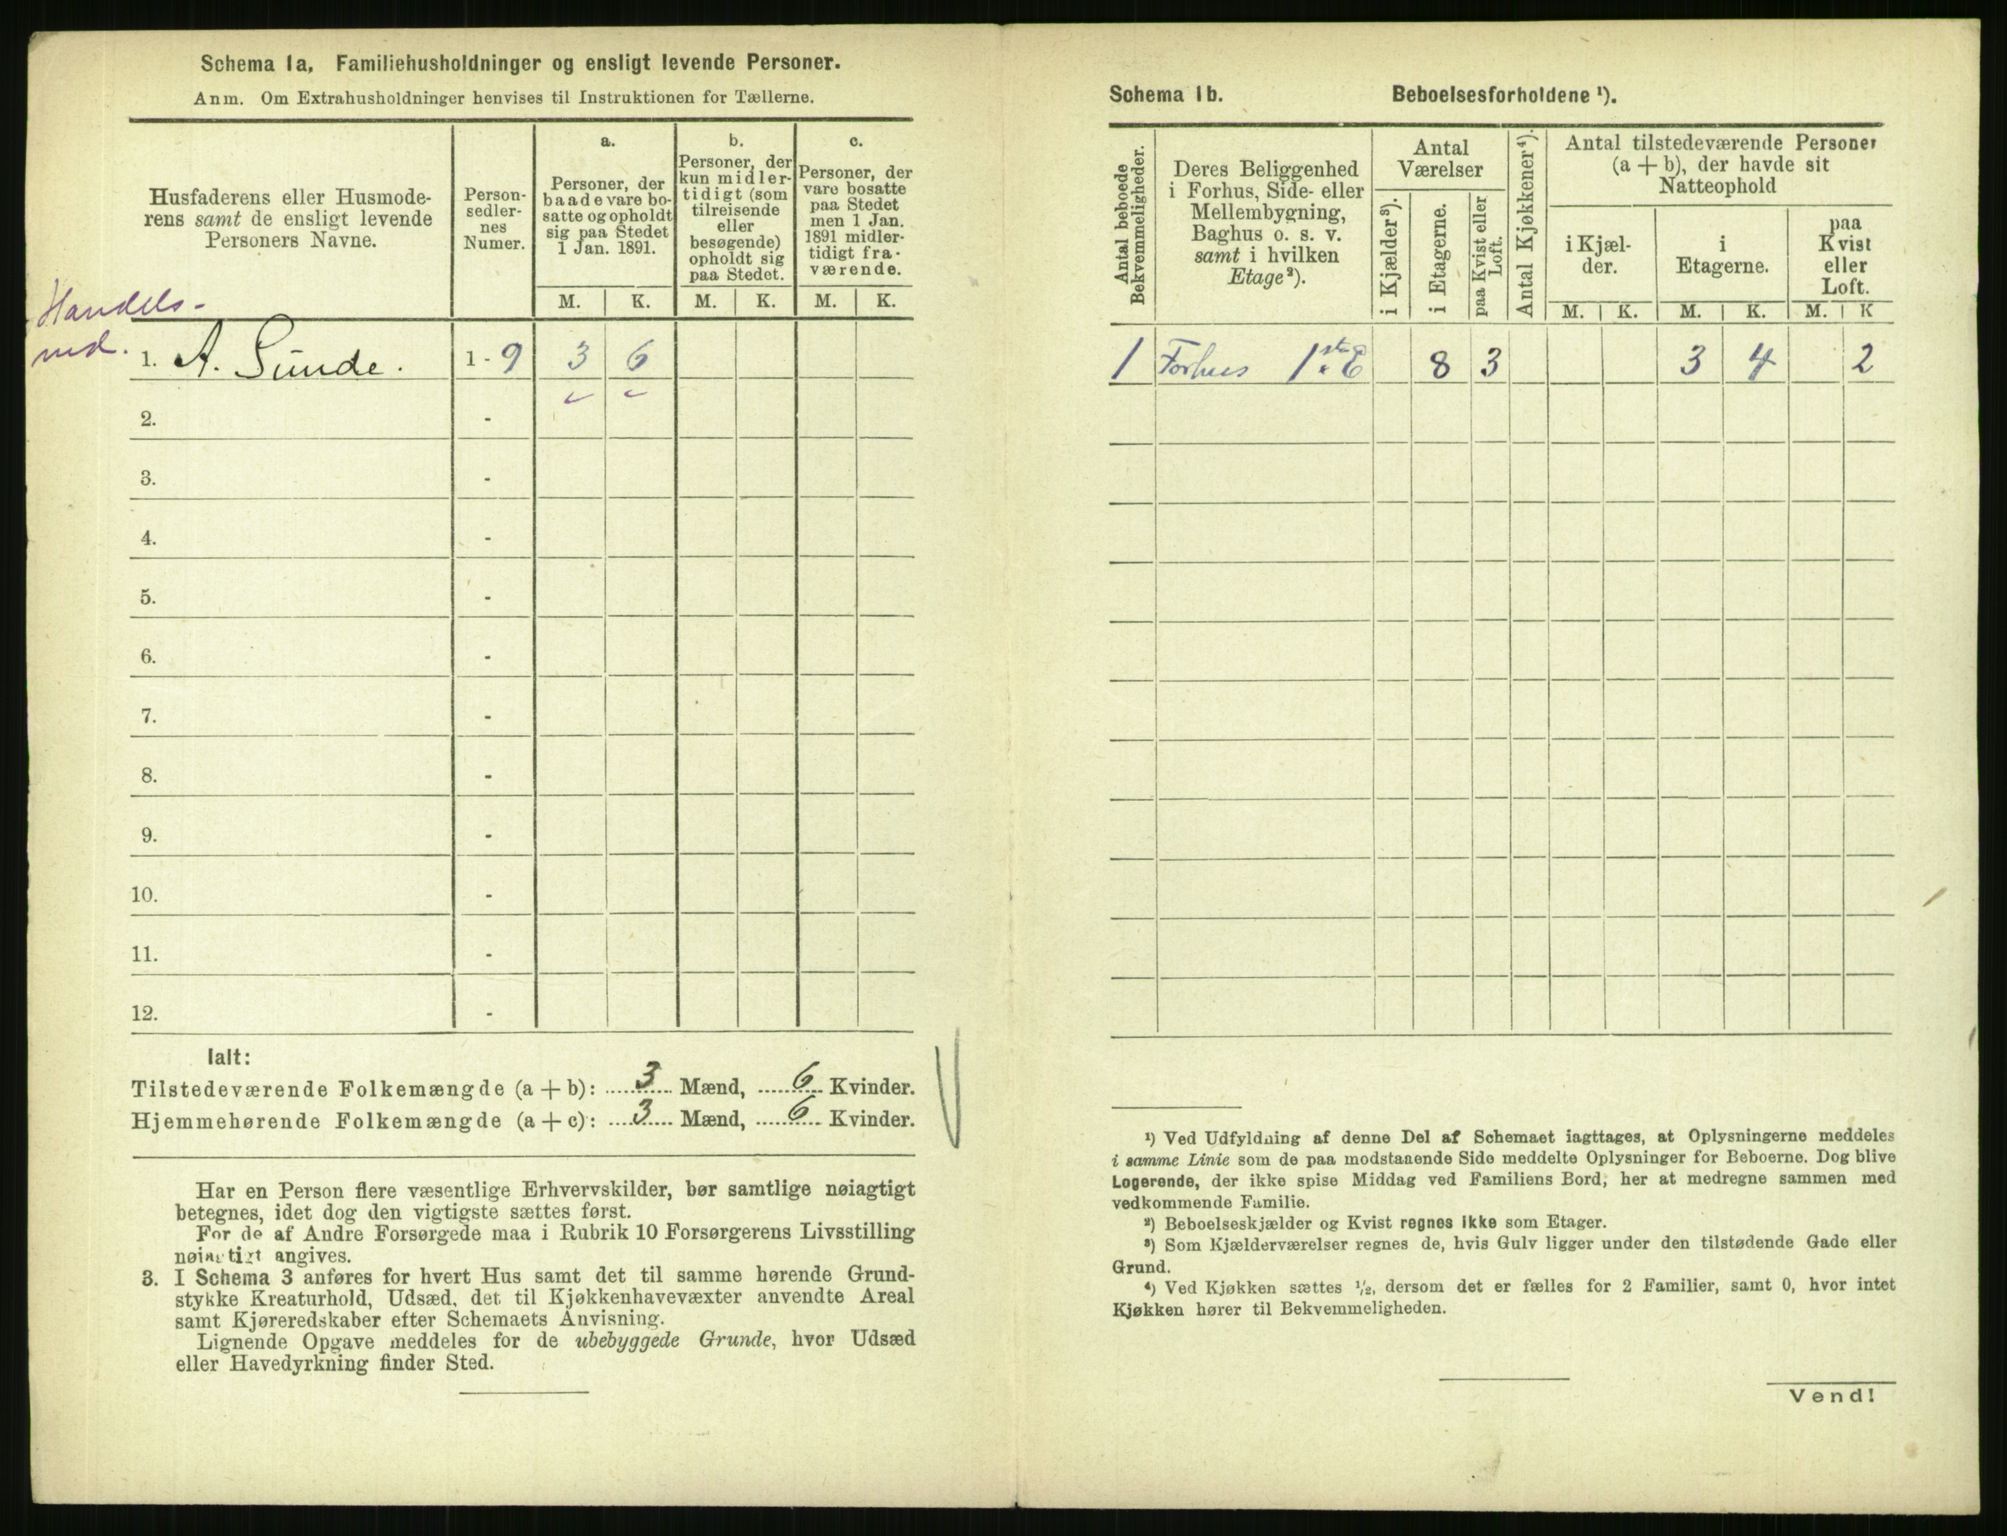 Schema 1a, Familiehusholdninger og ensligt levende Personer.
Anm. Om Extrahusholdninger henvises til Instruktionen for Tællerne.
Husfaderens eller Husmode-
rens samt de ensligt levende
Personers Navne.
Person-
sedler-
nes
Numer.
a.
Personer, der
baade vare bo-
satte og opholdt
sig paa Stedet
1 Jan. 1891.
b.
Personer, der
kun midler-
tidigt (som
tilreisende
eller
besøgende)
opholdt sig
paa Stedet.
c.
Personer, der
vare bosatte
paa Stedet
men 1 Jan.
1891 midler-
tidigt fra-
værende.
M. K. M. K. M. K.
Handels-
md.
1. A. Sunde. 1-9 3 6
2. -
3. -
4. -
5. -
6. -
7. -
8. -
9. -
10. -
11. -
12. -
Ialt:
Tilstedeværende Folkemængde (a + b): 3 Mænd, 6 Kvinder.
Hjemmehørende Folkemængde (a + c): 3 Mænd, 6 Kvinder.
Har en Person flere væsentlige Erhvervskilder, bør samtlige nøiagtigt
betegnes, idet dog den vigtigste sættes først.
For de af Andre Forsørgede maa i Rubrik 10 Forsørgerens Livsstilling
nøiagtigt angives.
3. I Schema 3 anføres for hvert Hus samt det til samme hørende Grund-
stykke Kreaturhold, Udsæd, det til Kjøkkenhavevæxter anvendte Areal
samt Kjøreredskaber efter Schemaets Anvisning.
Lignende Opgave meddeles for de ubebyggede Grunde, hvor Udsæd
eller Havedyrkning finder Sted.
Schema 1b. Beboelsesforholdene ¹).
Antal beboede
Bekvemmeligheder.
Deres Beliggenhed
i Forhus, Side- eller
Mellembygning,
Baghus o. s. v.
samt i hvilken
Etage²).
Antal
Værelser
i Kjælder³).
i Etagerne.
paa Kvist eller
Loft.
Antal Kjøkkener⁴).
Antal tilstedeværende Personer
(a + b), der havde sit
Natteophold
i Kjæl-
der.
i
Etagerne.
paa
Kvist
eller
Loft.
M. K. M. K. M. K
1 Forhus 1ste E 8 3 3 4 2
¹) Ved Udfyldning af denne Del af Schemaet iagttages, at Oplysningerne meddeles
i samme Linie som de paa modstaaende Side meddelte Oplysninger for Beboerne. Dog blive
Logerende, der ikke spise Middag ved Familiens Bord, her at medregne sammen med
vedkommende Familie.
²) Beboelseskjælder og Kvist regnes ikke som Etager.
³) Som Kjælderværelser regnes de, hvis Gulv ligger under den tilstødende Gade eller
Grund.
⁴) Ved Kjøkken sættes ¹/₂, dersom det er fælles for 2 Familier, samt 0, hvor intet
Kjøkken hører til Bekvemmeligheden.
Vend!